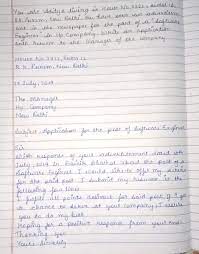 You are Aditya living in House No. 2322, Sector 12
R.K. Puram, New Delhi. You have seen an advertisement
in the newspaper for the post of a Software
Engineer in Hp Company. Write an application
with resume to the Manager of the company.
House No. 2322, Sector 12
R.K. Puram, New Delhi
July, 2024
The Manager
Hp Company
New Delhi
Subject: Application for the post of Software Engineer
Sir
With response of your advertisement dated
July, 2024 in Dainik Bhaskar about the post of a
Software Engineer I would like to offer my
for the said post I submit my resume at the
following for
I fulfil all points desired for said post. If I get
a chance to serve at your company, I assure
you to do my best.
Hoping for a positive response from your end.
Thanking you
Yours sincerely